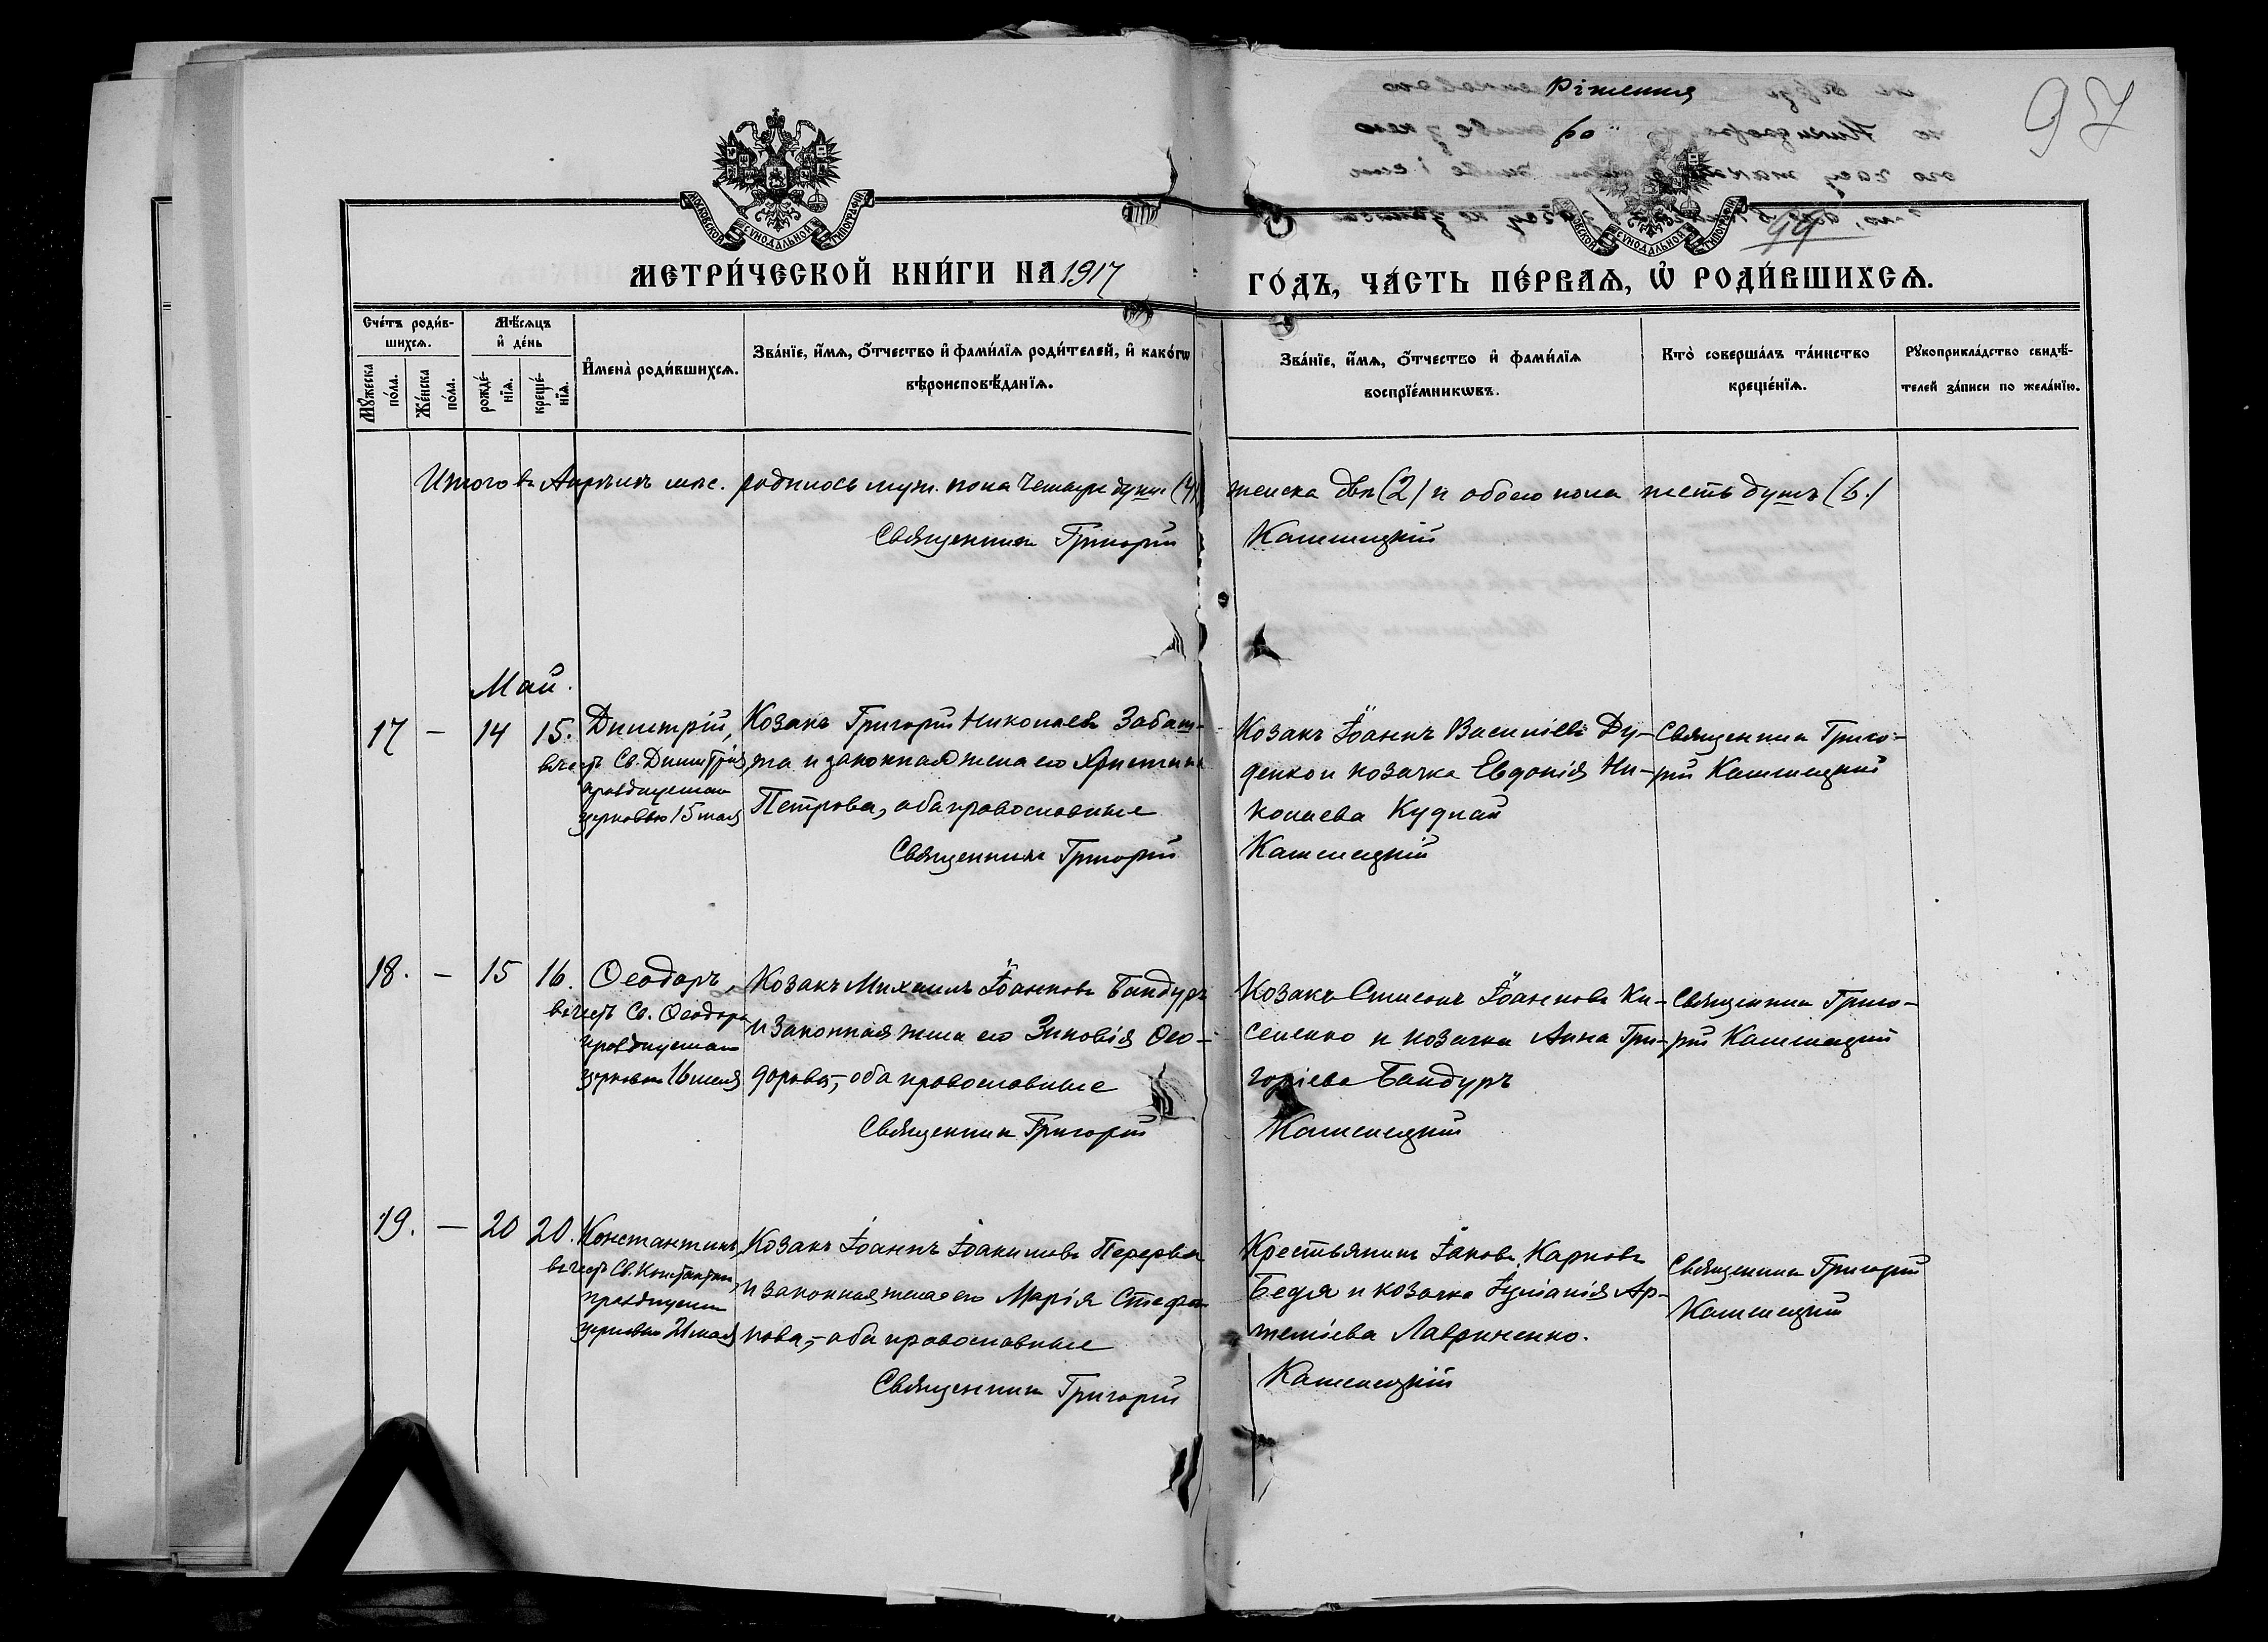 Рішення
97
60
99
МОСКОВСКОЙ СѴНОДАЛЬНОЙ ТИПОГРАФІИ
МОСКОВСКОЙ СѴНОДАЛЬНОЙ ТИПОГРАФІИ
МЕТРИ́ЧЕСКОЙ КНИ́ГИ НА 1917 ГО́ДЪ, ЧА́СТЬ ПЕ́РВАѦ, Ѡ҆ РОДИ́ВШИХСѦ.
Сче́тъ роди́в-
шихсѧ.
Мꙋ́жеска
по́ла.
Же́нска
по́ла.
Мѣ́сѧцъ
и҆ де́нь
рожде́-
нїѧ.
креще́-
нїѧ.
И҆мена̀ роди́вшихсѧ.
Зва́нїе, и҆́мѧ, ѻ҆́тчество и҆ фами́лїѧ роди́телей, и҆ како́гѡ
вѣроисповѣ́данїѧ.
Зва́нїе, и҆́мѧ, ѻ҆́тчество и҆ фами́лїѧ
воспрїе́мникѡвъ.
Кто̀ соверша́лъ та́инство
креще́нїѧ.
Рꙋкоприкла́дство свидѣ́-
телей за́писи по жела́нїю.
Итого въ Апрѣлѣ мѣс. родилось муж. пола четыре души (4) женска двѣ (2) и обоего пола шесть душъ (6.)
Священникъ Григорій Кашшицкій
Май.
17 – 14 15.
Димитрій,
въ честь Св. Димитрія,
празднуемаго
церковью 15 мая
Козакъ Григорій Николаевъ Забаш-
та и законная жена его Христина
Петрова, оба православные
Священникъ Григорій
Козакъ Іоаннъ Василіевъ Ду-
денко и козачка Евдокія Ни-
колаева Кудлай
Кашшицкій
Священникъ Григо-
рій Кашшицкій
18. – 15 16.
Ѳеодоръ,
въ честь Св. Ѳеодора
празднуемаго
церковью 16 мая
Козакъ Михаилъ Іоанновъ Бандуръ
и законная жена его Зиновія Ѳео-
дорова, – оба православные
Священникъ Григорій
Козакъ Симеонъ Іоанновъ Ки-
селенко и козачка Анна Гри-
горіева Бандуръ
Кашшицкій
Священникъ Григо-
рій Кашшицкій
19. – 20 20.
Константинъ,
въ честь Св. Константина,
празднуемаго
церковью 21 мая
Козакъ Іоаннъ Іоакимовъ Перерва
и законная жена его Марія Стефа-
нова, – оба православные
Священникъ Григорій
Крестьянинъ Іаковъ Карповъ
Бедя и козачка Іуліанія Ар-
теміева Лавриненко.
Кашшицкій
Священникъ Григорій
Кашшицкій